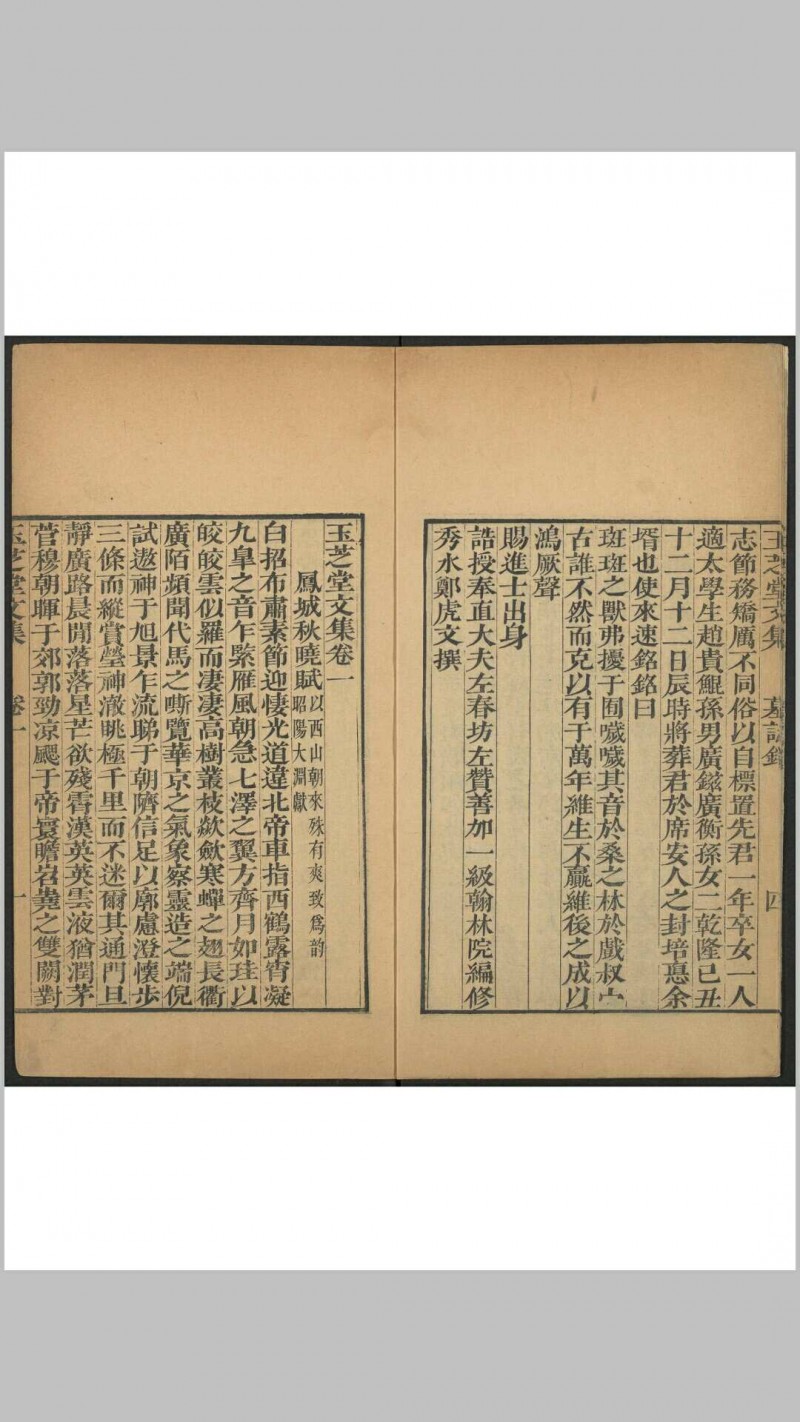 玉芝堂文集
墓誌銘
四
志節務矯厲不同俗以自標置先君一年卒女一人
適太學生趙貴鯤孫男廣鎡廣衡孫女二乾隆己丑
十二月十二日辰時將葬君於席安人之封培悳余
壻也使來速銘銘曰
斑斑之獸弗擾于囿噦噦其音於桑之林於戲叔宀
古誰不然而克以有于萬年維生不贏維後之成以
鴻厥聲
賜進士出身
誥授奉直大夫左春坊左贊善加一級翰林院編修
秀水鄭虎文撰
玉芝堂文集卷一
鳳城秋曉賦以西山朝來殊有爽致爲韵
昭陽大淵獻
白招布肅素節迎悽光道違北帝車指西鶴露宵凝
九臯之音乍緊雁風朝急七澤之翼方齊月如珪以
皎皎雲似羅而凄凄高樹叢枝歘歛寒蟬之翅長衢
廣陌頻聞代馬之嘶覽華京之氣象察靈造之端倪
試遨神于旭景乍流睇于朝隮信足以廓慮澄懷步
三條而縱賞瑩神澈眺極千里而不迷爾其通門旦
靜廣路晨閒落落星芒欲殘霄漢英英雲液猶潤茅
菅穆朝暉于郊郭勁凉颸于帝寰瞻岧嶤之雙闕對
玉芝堂文集
卷一
一